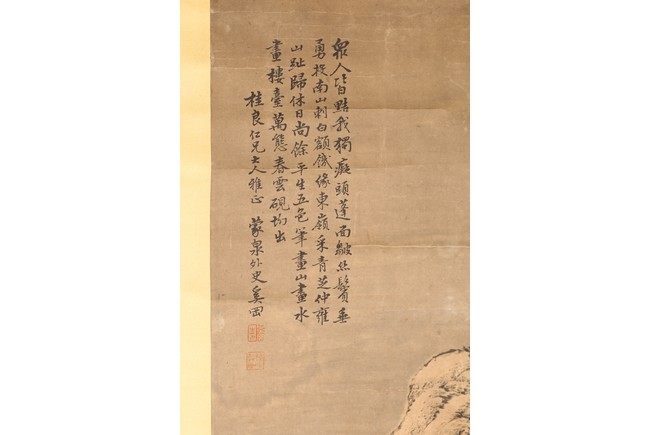 眾人皆黠我獨癡頭蓬面皺絲鬢垂
勇投南山刺白額饑緣東嶺采青芝仲雍
山趾歸休日尚餘平生五色筆畫山畫水
畫樓臺萬態春雲硯坳出
桂良仁兄大人雅正 蒙泉外史奚岡